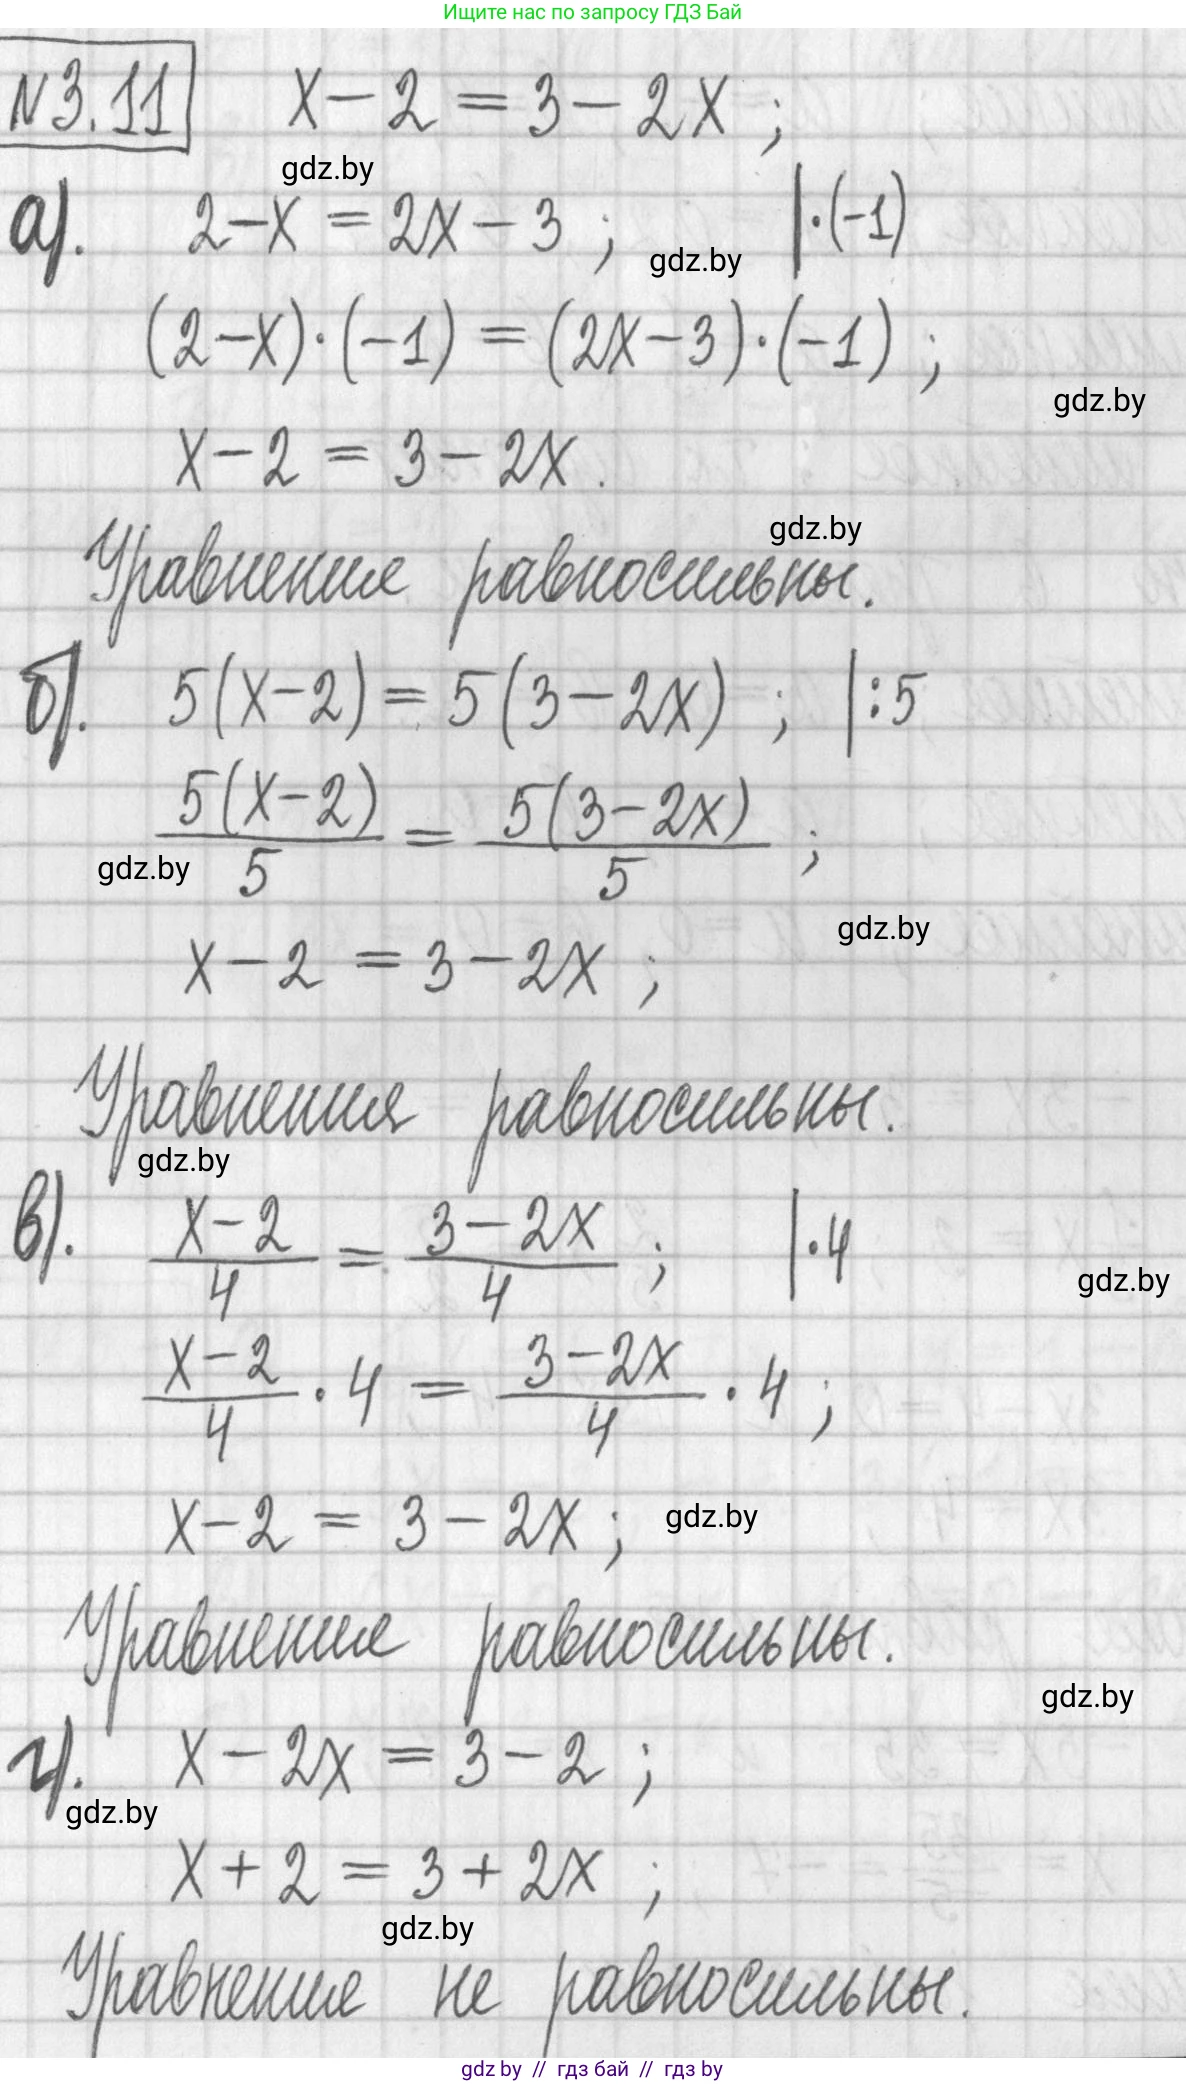 Ищите нас по запросу ГДЗ Бай
№3.11 x - 2 = 3 - 2x ;
gdz.by
а). 2 - x = 2x - 3 ; | · (-1)
gdz.by
(2 - x) · (-1) = (2x - 3) · (-1) ;
gdz.by
x - 2 = 3 - 2x .
gdz.by
Уравнение равносильны.
б). 5(x - 2) = 5(3 - 2x) ; | : 5
5(x - 2)/5 = 5(3 - 2x)/5 ;
gdz.by
gdz.by
x - 2 = 3 - 2x ;
Уравнения равносильны.
gdz.by
в). x - 2/4 = 3 - 2x/4 ; | · 4
gdz.by
x - 2/4 · 4 = 3 - 2x/4 · 4 ;
x - 2 = 3 - 2x ;
gdz.by
Уравнение равносильны.
gdz.by
г). x - 2x = 3 - 2 ;
gdz.by
x + 2 = 3 + 2x ;
gdz.by
Уравнение не равносильны.
gdz by // гдз бай // гдз by